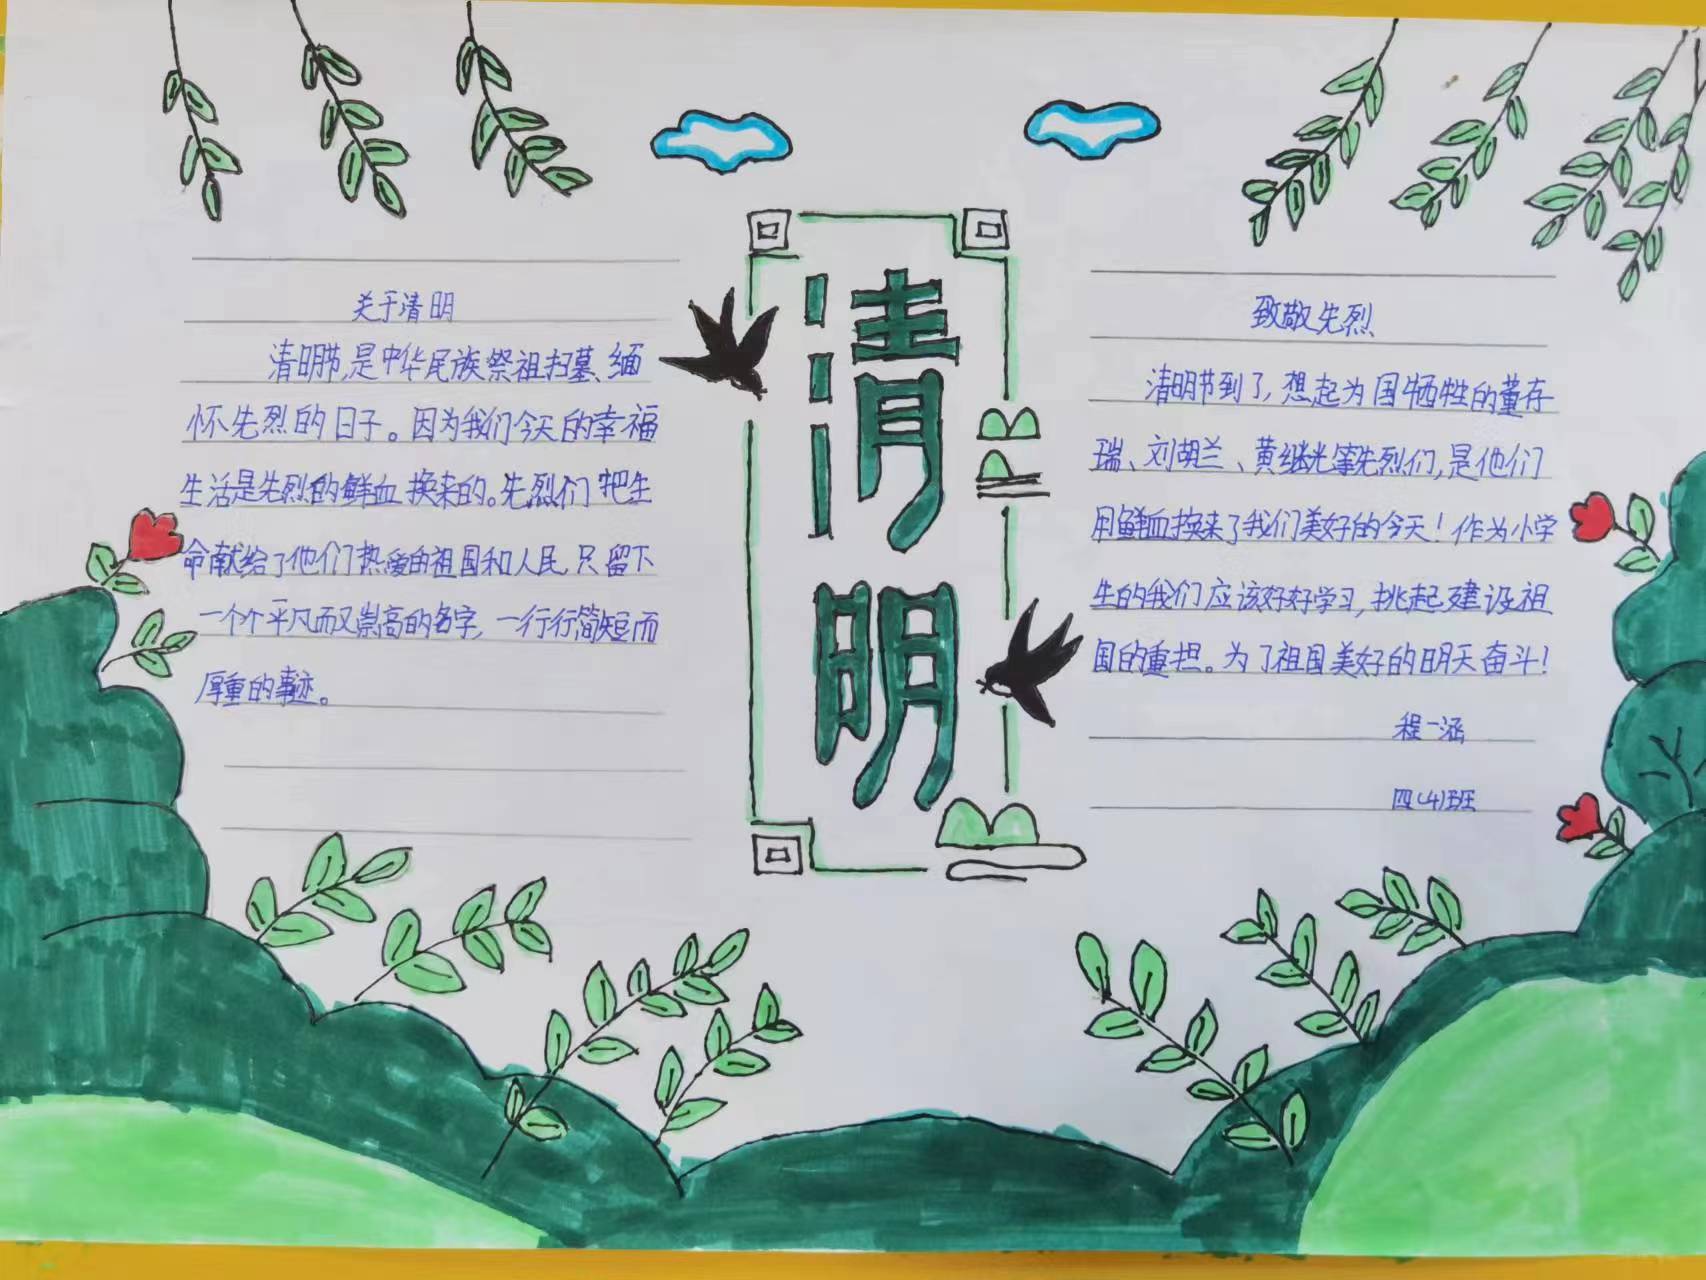 关于清明
清明节,是中华民族祭祖扫墓、缅
怀先烈的日子。因为我们今天的幸福
生活是先烈的鲜血换来的。先烈们把生
命献给了他们热爱的祖国和人民,只留下
一个个平凡而又崇高的名字,一行行简短而
厚重的事迹。
清
明
致敬先烈
清明节到了,想起为国牺牲的董存
瑞、刘胡兰、黄继光等先烈们,是他们
用鲜血换来了我们美好的今天!作为小学
生的我们应该好好学习,挑起建设祖
国的重担。为了祖国美好的明天奋斗!
程一涵
四(4)班